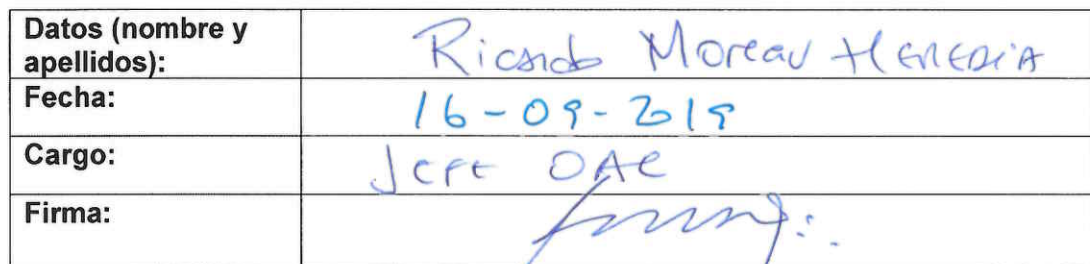 Datos (nombre y
apellidos):
Ricardo Moreau HEREDIA
Fecha:
16-09-2019
Cargo:
Jefe OAC
Firma: